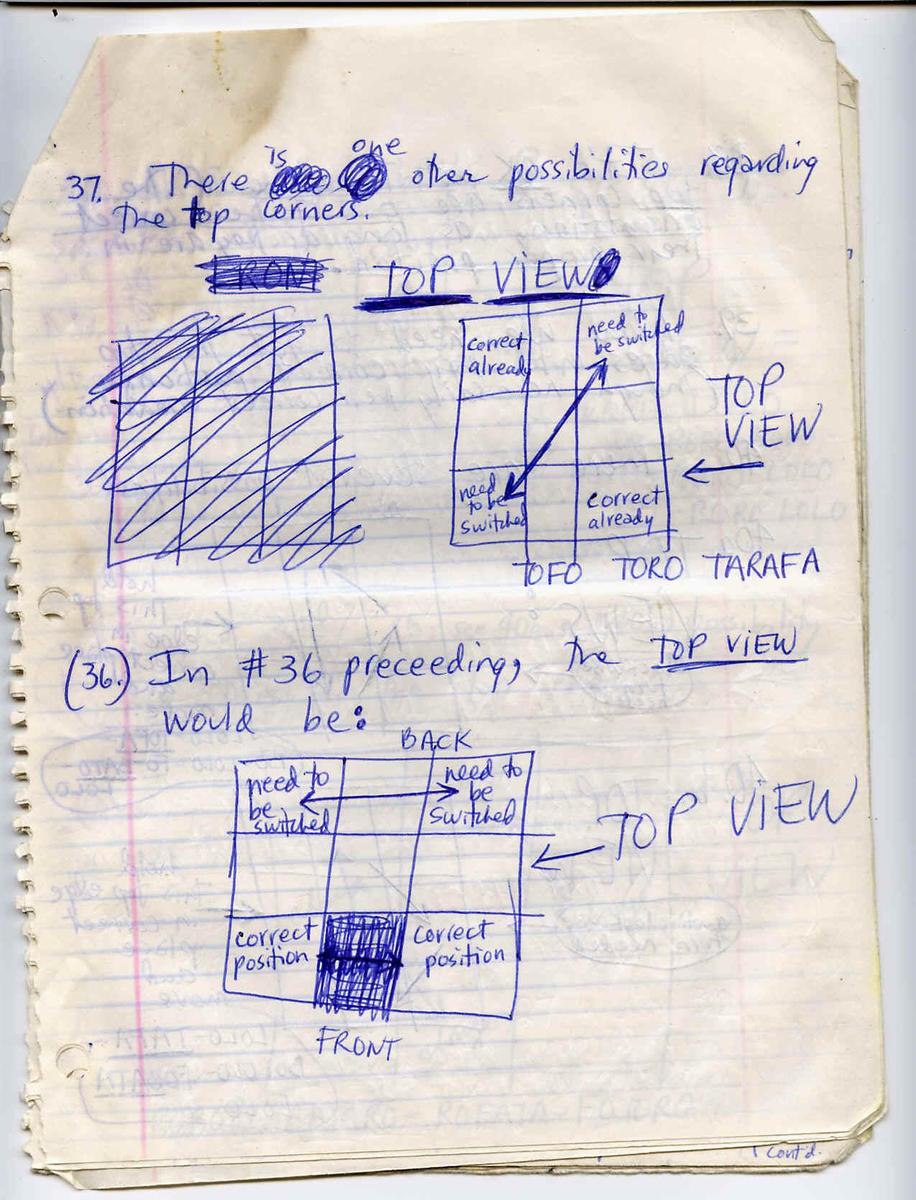 37. There is one other possibilities regarding
the top corners.
TOP VIEW
correct
already
need to
be switched
need
to be
switched
correct
already
TOP
VIEW
TOFO TORO TARAFA
(36.) In #36 preceeding, the TOP VIEW
would be:
BACK
need to
be
switched
need to
be
switched
TOP VIEW
correct
position
correct
position
FRONT
cont'd.